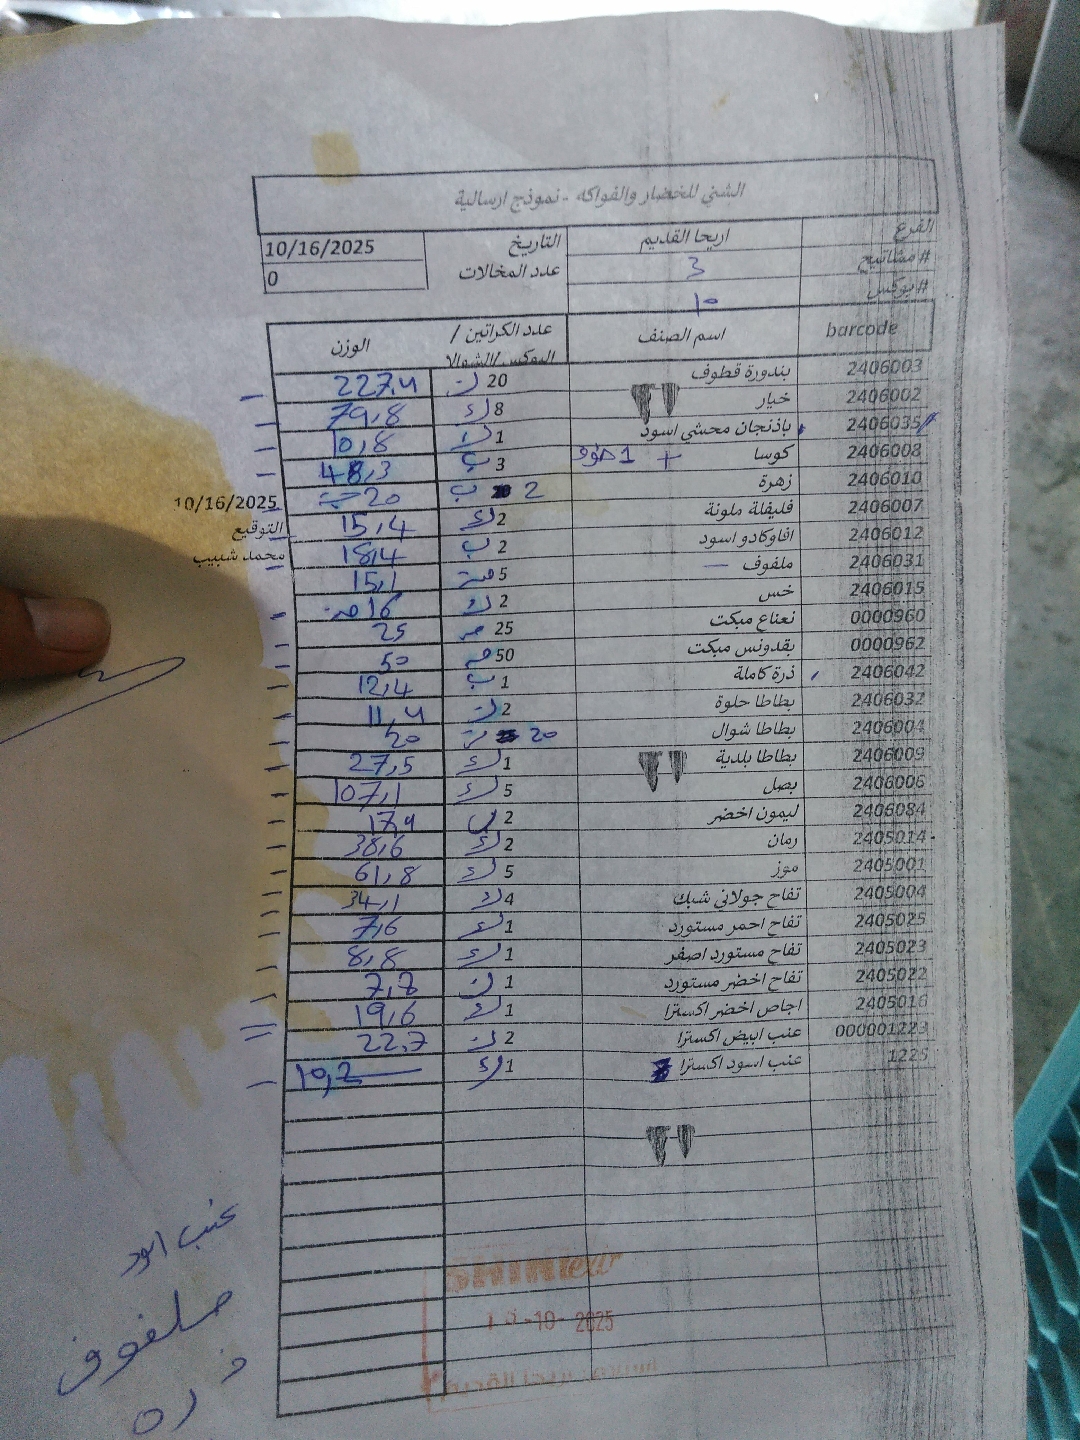 الشني للخضار والفواكه - نموذج ارسالية
الفرع اريحا القديم التاريخ 10/16/2025
# مشاتيح 3 عدد المخالات 0
# بوكس 10
barcode اسم الصنف عدد الكراتين / البوكس/الشوالا الوزن
2406003 بندورة قطوف 20 227,4
2406002 خيار 8 ك 79,8
2406035 باذنجان محشي اسود 1 ك 10,8
2406008 كوسا + 1 3 ب 48,3
2406010 زهرة 2 ب 20 حب
2406007 فليفلة ملونة 2 ك 15,4
2406012 افاوكادو اسود 2 ب 18,4
2406031 ملفوف 5 15,1
2406015 خس 2 ك 16
0000960 نعناع مبكت 25 25
0000962 بقدونس مبكت 50 50
2406042 ذرة كاملة 1 ب 12,4
2406032 بطاطا حلوة 2 ك 11,4
2406004 بطاطا شوال 20 20
2406009 بطاطا بلدية 1 ك 27,5
2406006 بصل 5 ك 107,1
2406084 ليمون اخضر 2 17,9
2405014 رمان 2 ك 38,6
2405001 موز 5 ك 61,8
2405004 تفاح جولاني شبك 4 ك 34,1
2405025 تفاح احمر مستورد 1 ك 7,6
2405023 تفاح مستورد اصفر 1 ك 8,8
2405022 تفاح اخضر مستورد 1 ك 7,7
2405016 اجاص اخضر اكسترا 1 ك 19,6
000001223 عنب ابيض اكسترا 2 ك 22,7
1225 عنب اسود اكسترا 1 ك 10,2
10/16/2025
التوقيع
محمد شبيب
عنب اسود
ملفوف
-10- 2025